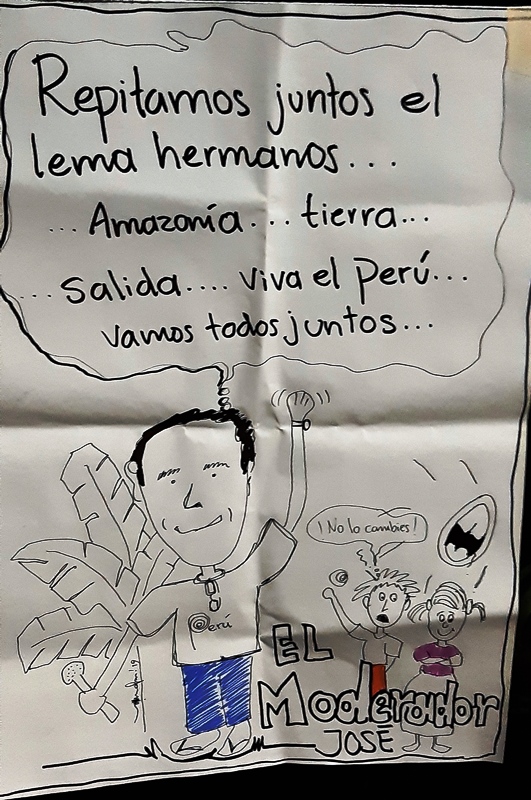 Repitamos juntos el
lema hermanos...
...Amazonía...tierra...
...salida....viva el Perú...
vamos todos juntos...
¡No lo cambies!
@erú
EL
Moderador
JOSÉ